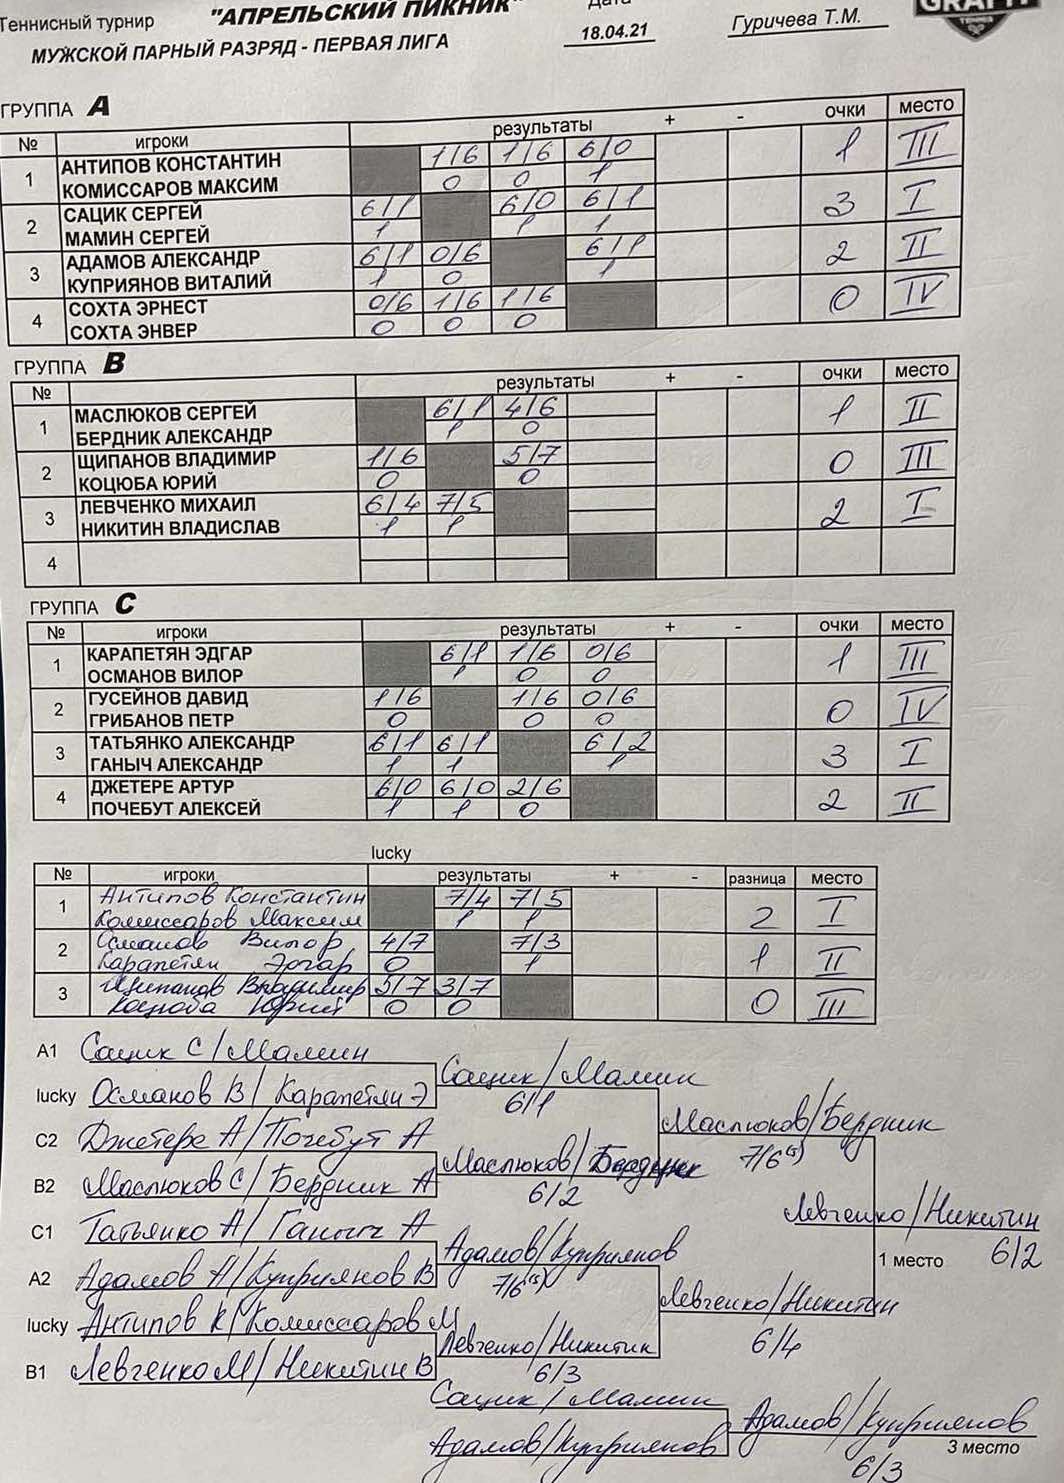 Теннисный турнир "АПРЕЛЬСКИЙ ПИКНИК" Дата
МУЖСКОЙ ПАРНЫЙ РАЗРЯД - ПЕРВАЯ ЛИГА 18.04.21 Гуричева Т.М.
ТЕННИС
ГРУППА A
№ игроки результаты + - очки место
1 АНТИПОВ КОНСТАНТИН 1/6 1/6 6/0 1 III
КОМИССАРОВ МАКСИМ 0 0 1
2 САЦИК СЕРГЕЙ 6/1 6/0 6/1 3 I
МАМИН СЕРГЕЙ 1 1 1
3 АДАМОВ АЛЕКСАНДР 6/1 0/6 6/1 2 II
КУПРИЯНОВ ВИТАЛИЙ 1 0 1
4 СОХТА ЭРНЕСТ 0/6 1/6 1/6 0 IV
СОХТА ЭНВЕР 0 0 0
ГРУППА B
№ результаты + - очки место
1 МАСЛЮКОВ СЕРГЕЙ 6/1 4/6 1 II
БЕРДНИК АЛЕКСАНДР 1 0
2 ЩИПАНОВ ВЛАДИМИР 1/6 5/7 0 III
КОЦЮБА ЮРИЙ 0 0
3 ЛЕВЧЕНКО МИХАИЛ 6/4 7/5 2 I
НИКИТИН ВЛАДИСЛАВ 1 1
4
ГРУППА C
№ игроки результаты + - очки место
1 КАРАПЕТЯН ЭДГАР 6/1 1/6 0/6 1 III
ОСМАНОВ ВИЛОР 1 0 0
2 ГУСЕЙНОВ ДАВИД 1/6 1/6 0/6 0 IV
ГРИБАНОВ ПЕТР 0 0 0
3 ТАТЬЯНКО АЛЕКСАНДР 6/1 6/1 6/2 3 I
ГАНЫЧ АЛЕКСАНДР 1 1 1
4 ДЖЕТЕРЕ АРТУР 6/0 6/0 2/6 2 II
ПОЧЕБУТ АЛЕКСЕЙ 1 1 0
lucky
№ игроки результаты + - разница место
1 Антипов Константин 7/4 7/5 2 I
Комиссаров Максим 1 1
2 Османов Вилор, 4/7 7/3 1 II
Карапетян Эдгар 0 1
3 Щипанов Владимир 5/7 3/7 0 III
Коцюба Юрий 0 0
A1 Сацик С/Мамин
Сацик/Мамин
lucky Османов В/Карапетян Э
6/1
Маслюков/Бердник
C2 Джетере А/Почебут А
7/6(5)
Маслюков/Бердник
B2 Маслюков С/Бердник А
6/2
Левченко/Никитин
C1 Татьянко А/Ганыч А
Адамов/Куприянов
1 место 6/2
A2 Адамов А/Куприянов В
7/6(5)
Левченко/Никитин
lucky Антипов К/Комиссаров М
Левченко/Никитин 6/4
B1 Левченко М/Никитин В
6/3
Сацик/Мамин
Адамов/Куприянов
Адамов/Куприянов
3 место
6/3